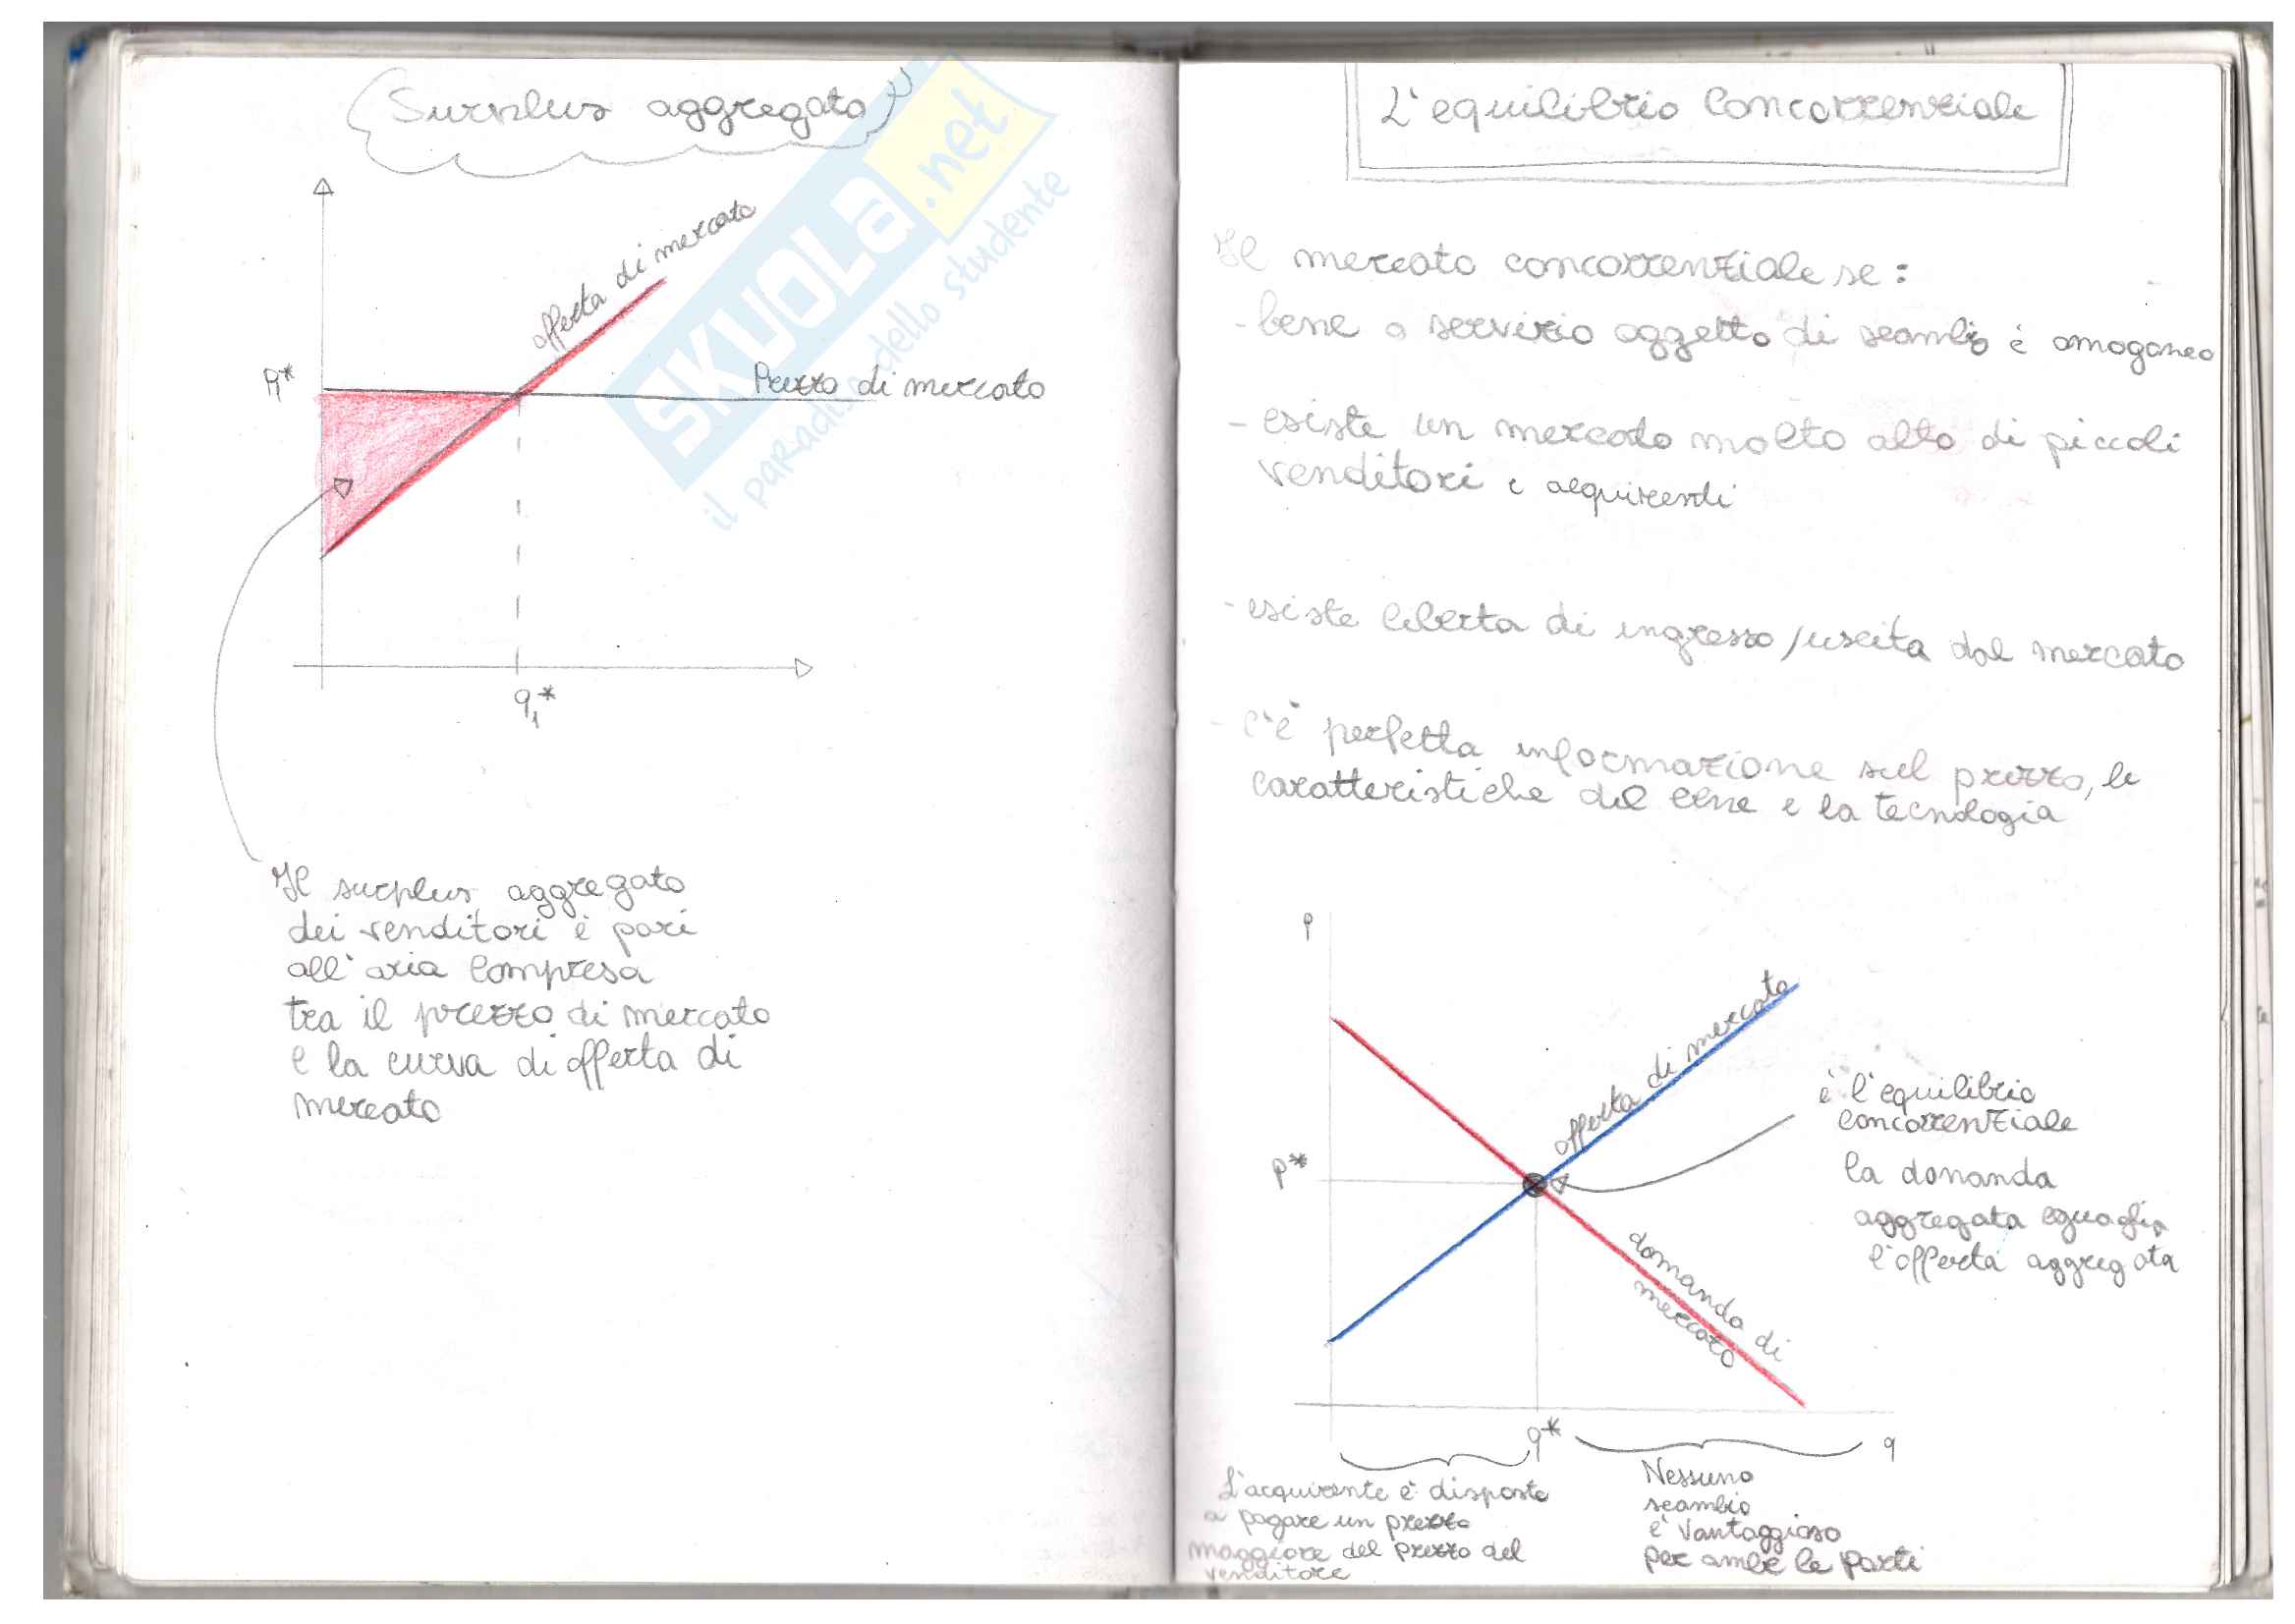 Surplus aggregato
offerta di mercato
P1*
Prezzo di mercato
q1*
Il surplus aggregato
dei venditori è pari
all'aria compresa
tra il prezzo di mercato
e la curva di offerta di
mercato
SKUOLA.net
il paradiso dello studente
L'equilibrio concorrenziale
Il mercato concorrenziale se:
- bene o servizio oggetto di scambio è omogeneo
- esiste un mercato molto alto di piccoli
venditori e acquirenti
- esiste liberta di ingresso/uscita dal mercato
- c'è perfetta informazione sul prezzo, le
caratteristiche del bene e la tecnologia
P
offerta di mercato
è l'equilibrio
concorrenziale
P*
la domanda
aggregata eguaglia
l'offerta aggregata
domanda di
mercato
q*
q
L'acquirente è disposto
a pagare un prezzo
maggiore del prezzo del
venditore
Nessuno
scambio
è vantaggioso
per ambe le parti